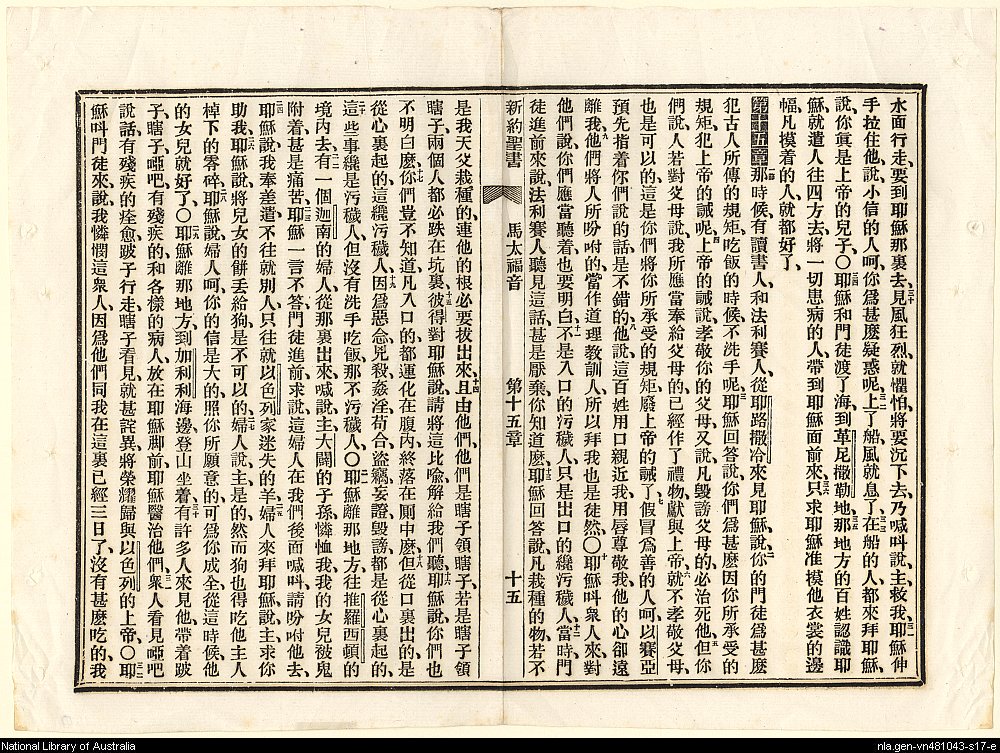 水面行走、要到耶穌那裏去、見風狂烈就懼怕、將要沉下去、乃喊呌說、主救我、耶穌伸
手拉住他、說、小信的人呵、你爲甚麼疑惑呢、上了船、風就息了、在船的人都來拜耶穌、
說、你眞是上帝的兒子、〇耶穌和門徒渡了海、到革尼撒勒地、那地方的百姓認識耶
穌、就遣人往四方去、將一切患病的人帶到耶穌面前來、只求耶穌准摸他衣裳的邊
幅、凡摸着的人、就都好了、
第十五章那時候有讀書人和法利賽人、從耶路撒冷來見耶穌、說、你的門徒爲甚麼
犯古人所傳的規矩、吃飯的時候不洗手呢、耶穌回答說、你們爲甚麼因你所承受的
規矩、犯上帝的誡呢、上帝的誡說、孝敬你的父母、又說、凡毀謗父母的、必治死他、但你
們說、人若對父母說、我所應當奉給父母的、已經作了禮物獻與上帝、就不孝敬父母、
也是可以的、這是你們將你所承受的規矩、廢上帝的誡了、假冒爲善的人呵、以賽亞
預先指着你們說的話是不錯的、他說、這百姓用口親近我、用唇尊敬我、他的心卻遠
離我、他們將人所吩咐的、當作道理教訓人、所以拜我也是徒然、〇耶穌呌衆人來、對
他們說、你們應當聽着、也要明白、不是入口的污穢人、只是出口的纔污穢人、當時門
徒進前來說、法利賽人聽見這話、甚是厭棄、你知道麼、耶穌回答說、凡栽種的物、若不
新約聖書 馬太福音 第十五章 十五
是我天父栽種的、連他的根必要拔出來、且由他們、他們是瞎子領瞎子、若是瞎子領
瞎子、兩個人都必跌在坑裏、彼得對耶穌說、請將這比喩解給我們聽、耶穌說、你們也
不明白麼、你們豈不知道、凡入口的、都運化在腹內、終落在厠中麼、但從口裏出的、是
從心裏起的、這纔污穢人、因爲惡念兇殺姦淫苟合盜竊妄證毀謗、都是從心裏起的、
這些事纔是污穢人、但沒有洗手吃飯、那不污穢人、〇耶穌離那地方、往推羅西頓的
境內去、有一個迦南的婦人、從那裏出來喊說、主大闢的子孫、憐恤我、我的女兒被鬼
附着、甚是痛苦、耶穌一言不答、門徒進前求說、這婦人在我們後面喊呌、請吩咐他去、
耶穌說、我奉差遣、不往就別人、只往就以色列家迷失的羊、婦人來拜耶穌、說、主求你
助我、耶穌說、將兒女的餅丟給狗、是不可以的、婦人說、主是的、然而狗也得吃他主人
棹下的零碎、耶穌說、婦人呵、你的信是大的、照你所願意的、可爲你成全、從這時候他
的女兒就好了、〇耶穌離那地方、到加利利海邊、登山坐着、有許多人來見他、帶着跛
子、瞎子、啞吧、有殘疾的、和各樣的病人、放在耶穌脚前、耶穌醫治他們、衆人看見啞吧
說話、有殘疾的痊愈、跛子行走、瞎子看見、就甚詫異、將榮耀歸與以色列的上帝、〇耶
穌呌門徒來、說、我憐憫這衆人、因爲他們同我在這裏已經三日了、沒有甚麼吃的、我
National Library of Australia
nla.gen-vn481043-s17-e